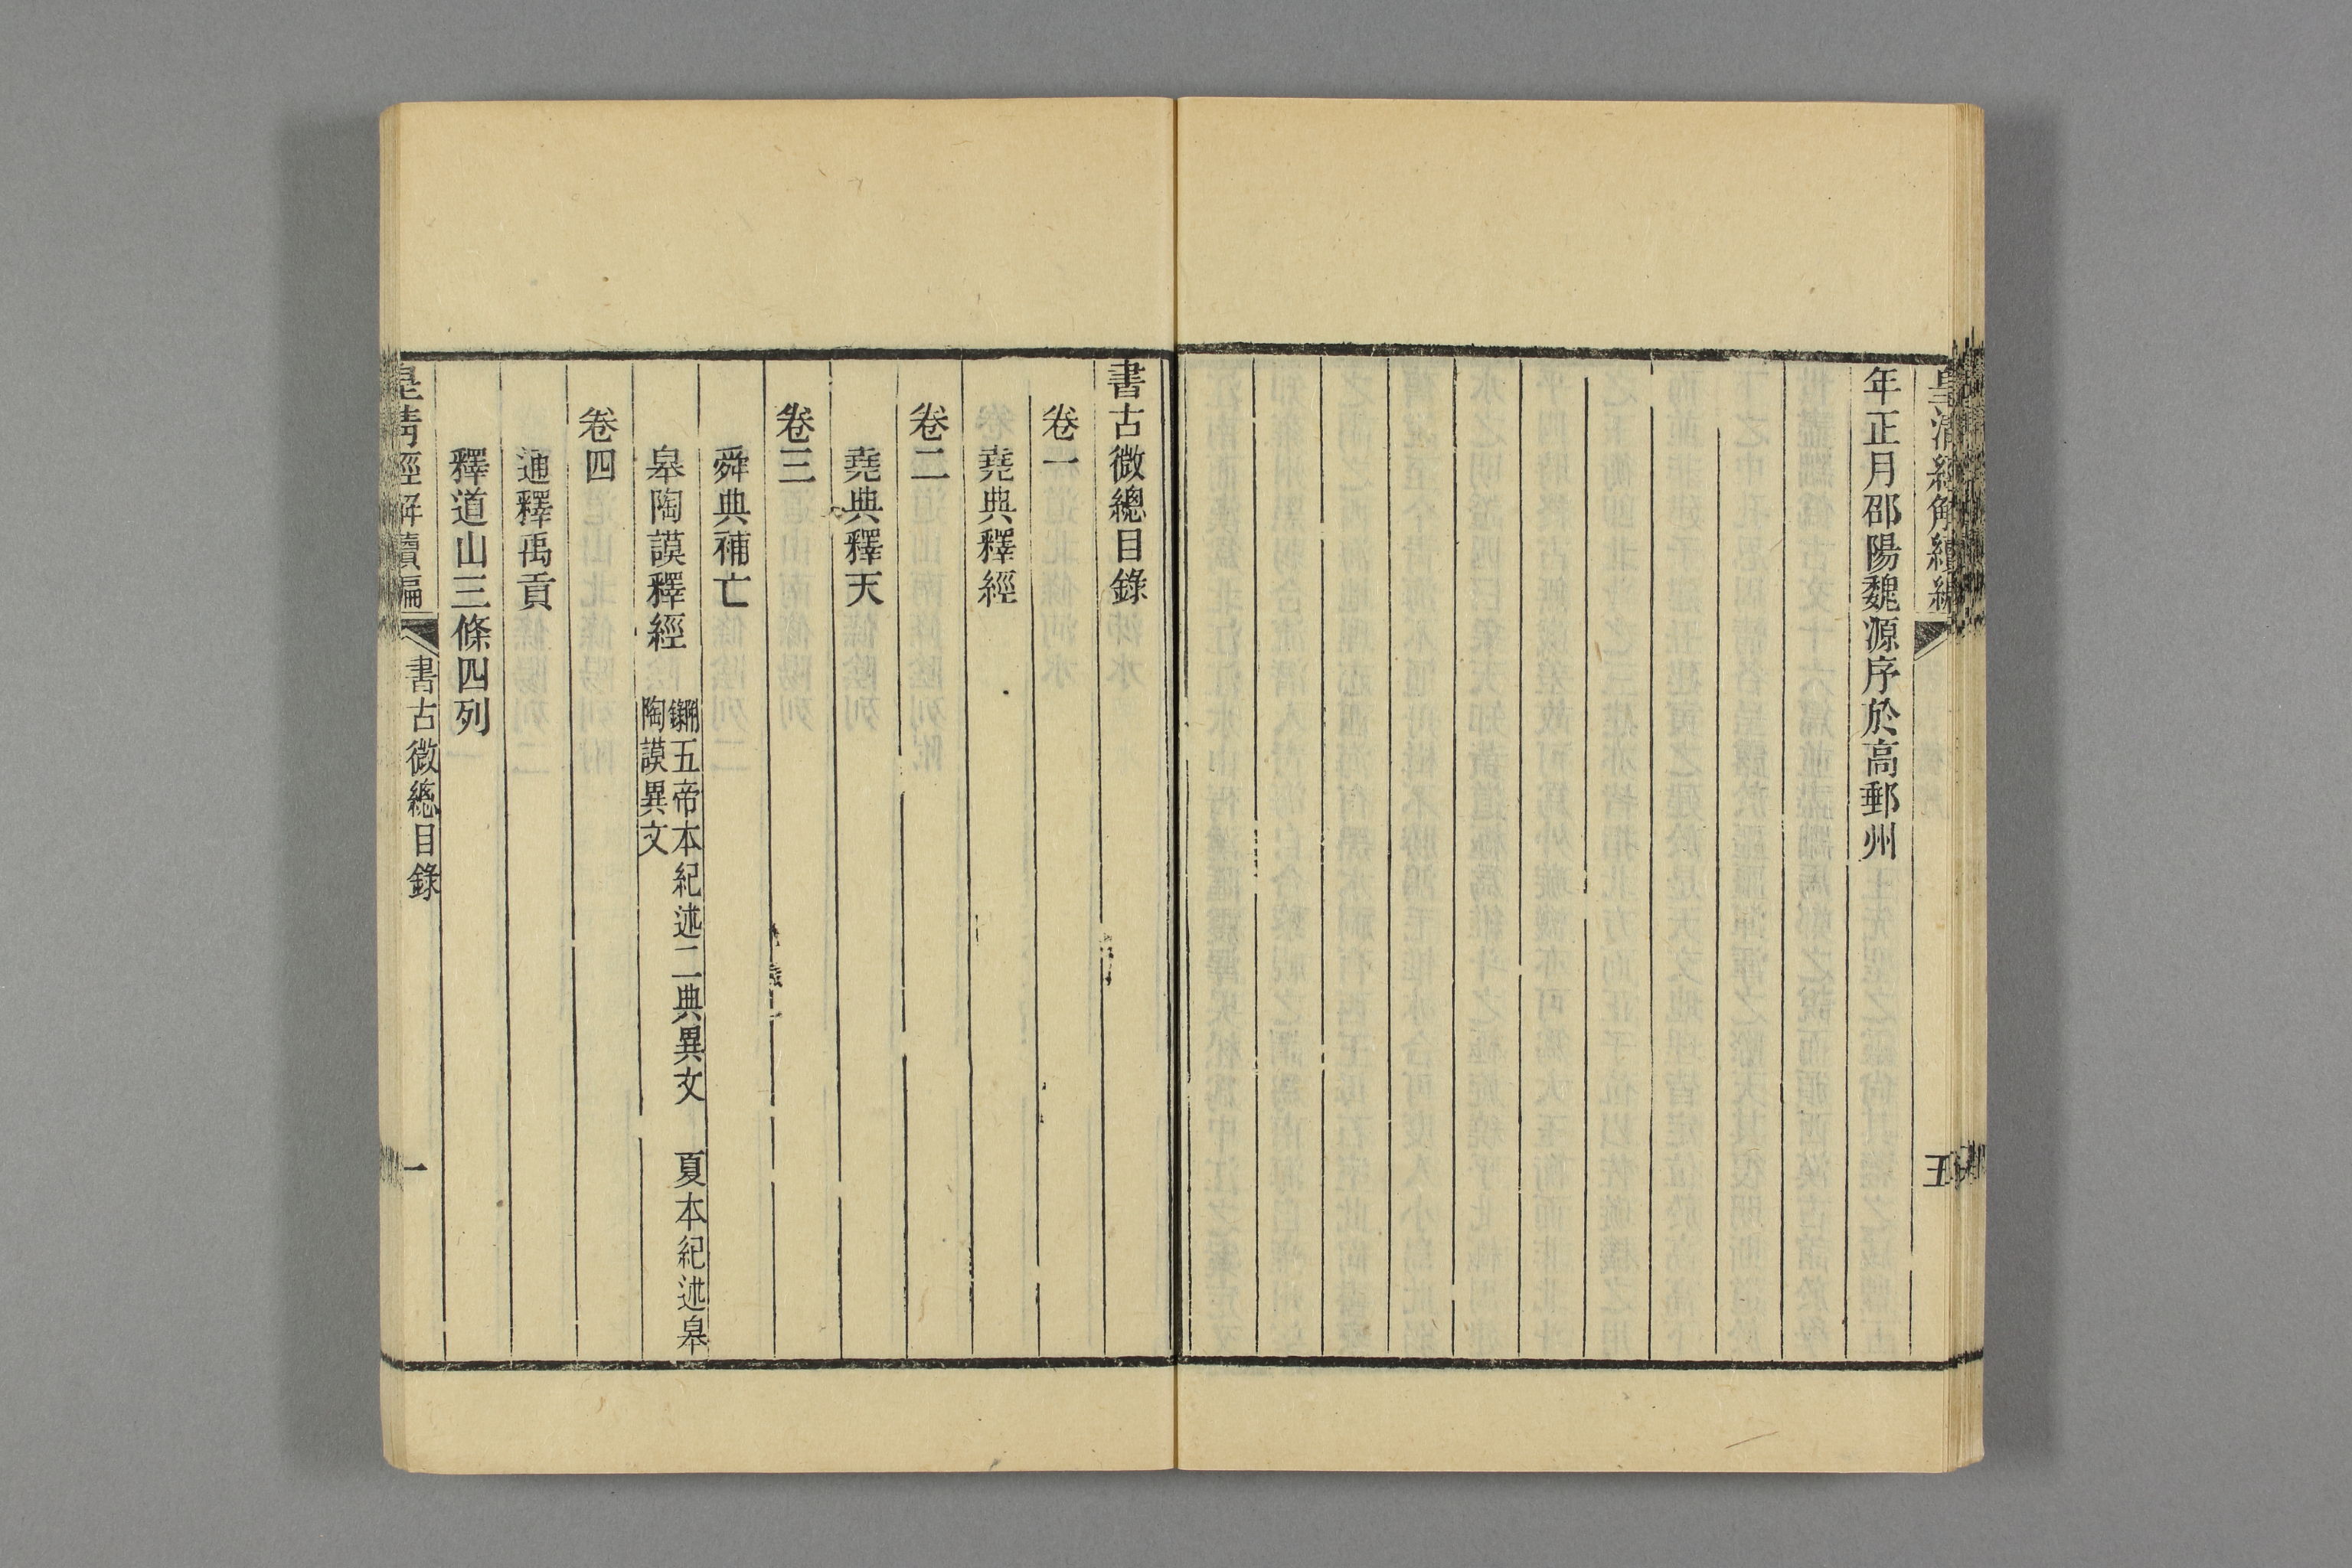 皇清經解續編
五
年正月邵陽魏源序於高郵州
書古微總目錄
卷一
堯典釋經
卷二
堯典釋天
卷三
舜典補亡
皋陶謨釋經
附錄五帝本紀述二典異文 夏本紀述皋
陶謨異文
卷四
通釋禹貢
釋道山三條四列
皇清經解續編
書古微總目錄
一